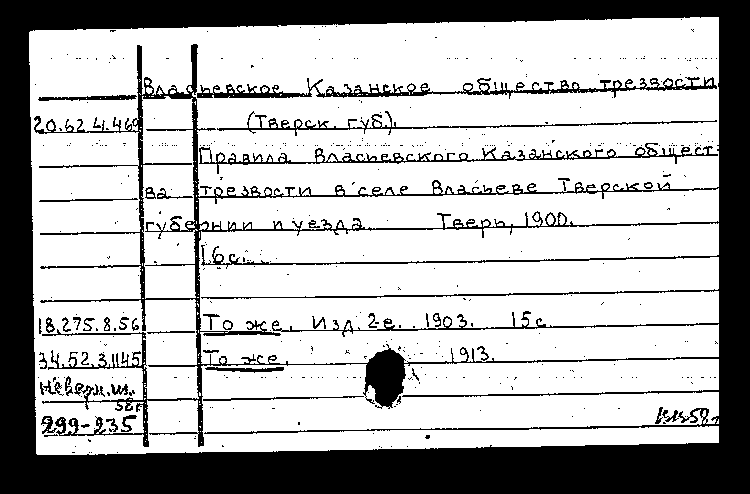 Власьевское Казанское общество трезвости
20.62.4.469 (Тверск. губ.).
Правила Власьевского Казанского общест-
ва трезвости в селе Власьеве Тверской
губернии и уезда. Тверь, 1900.
16 с.
18.275.8.56 То же. Изд. 2-е. 1903. 15 с.
34.52.3.1145 То же. 1913.
неверн. ш.
58 г
299-235